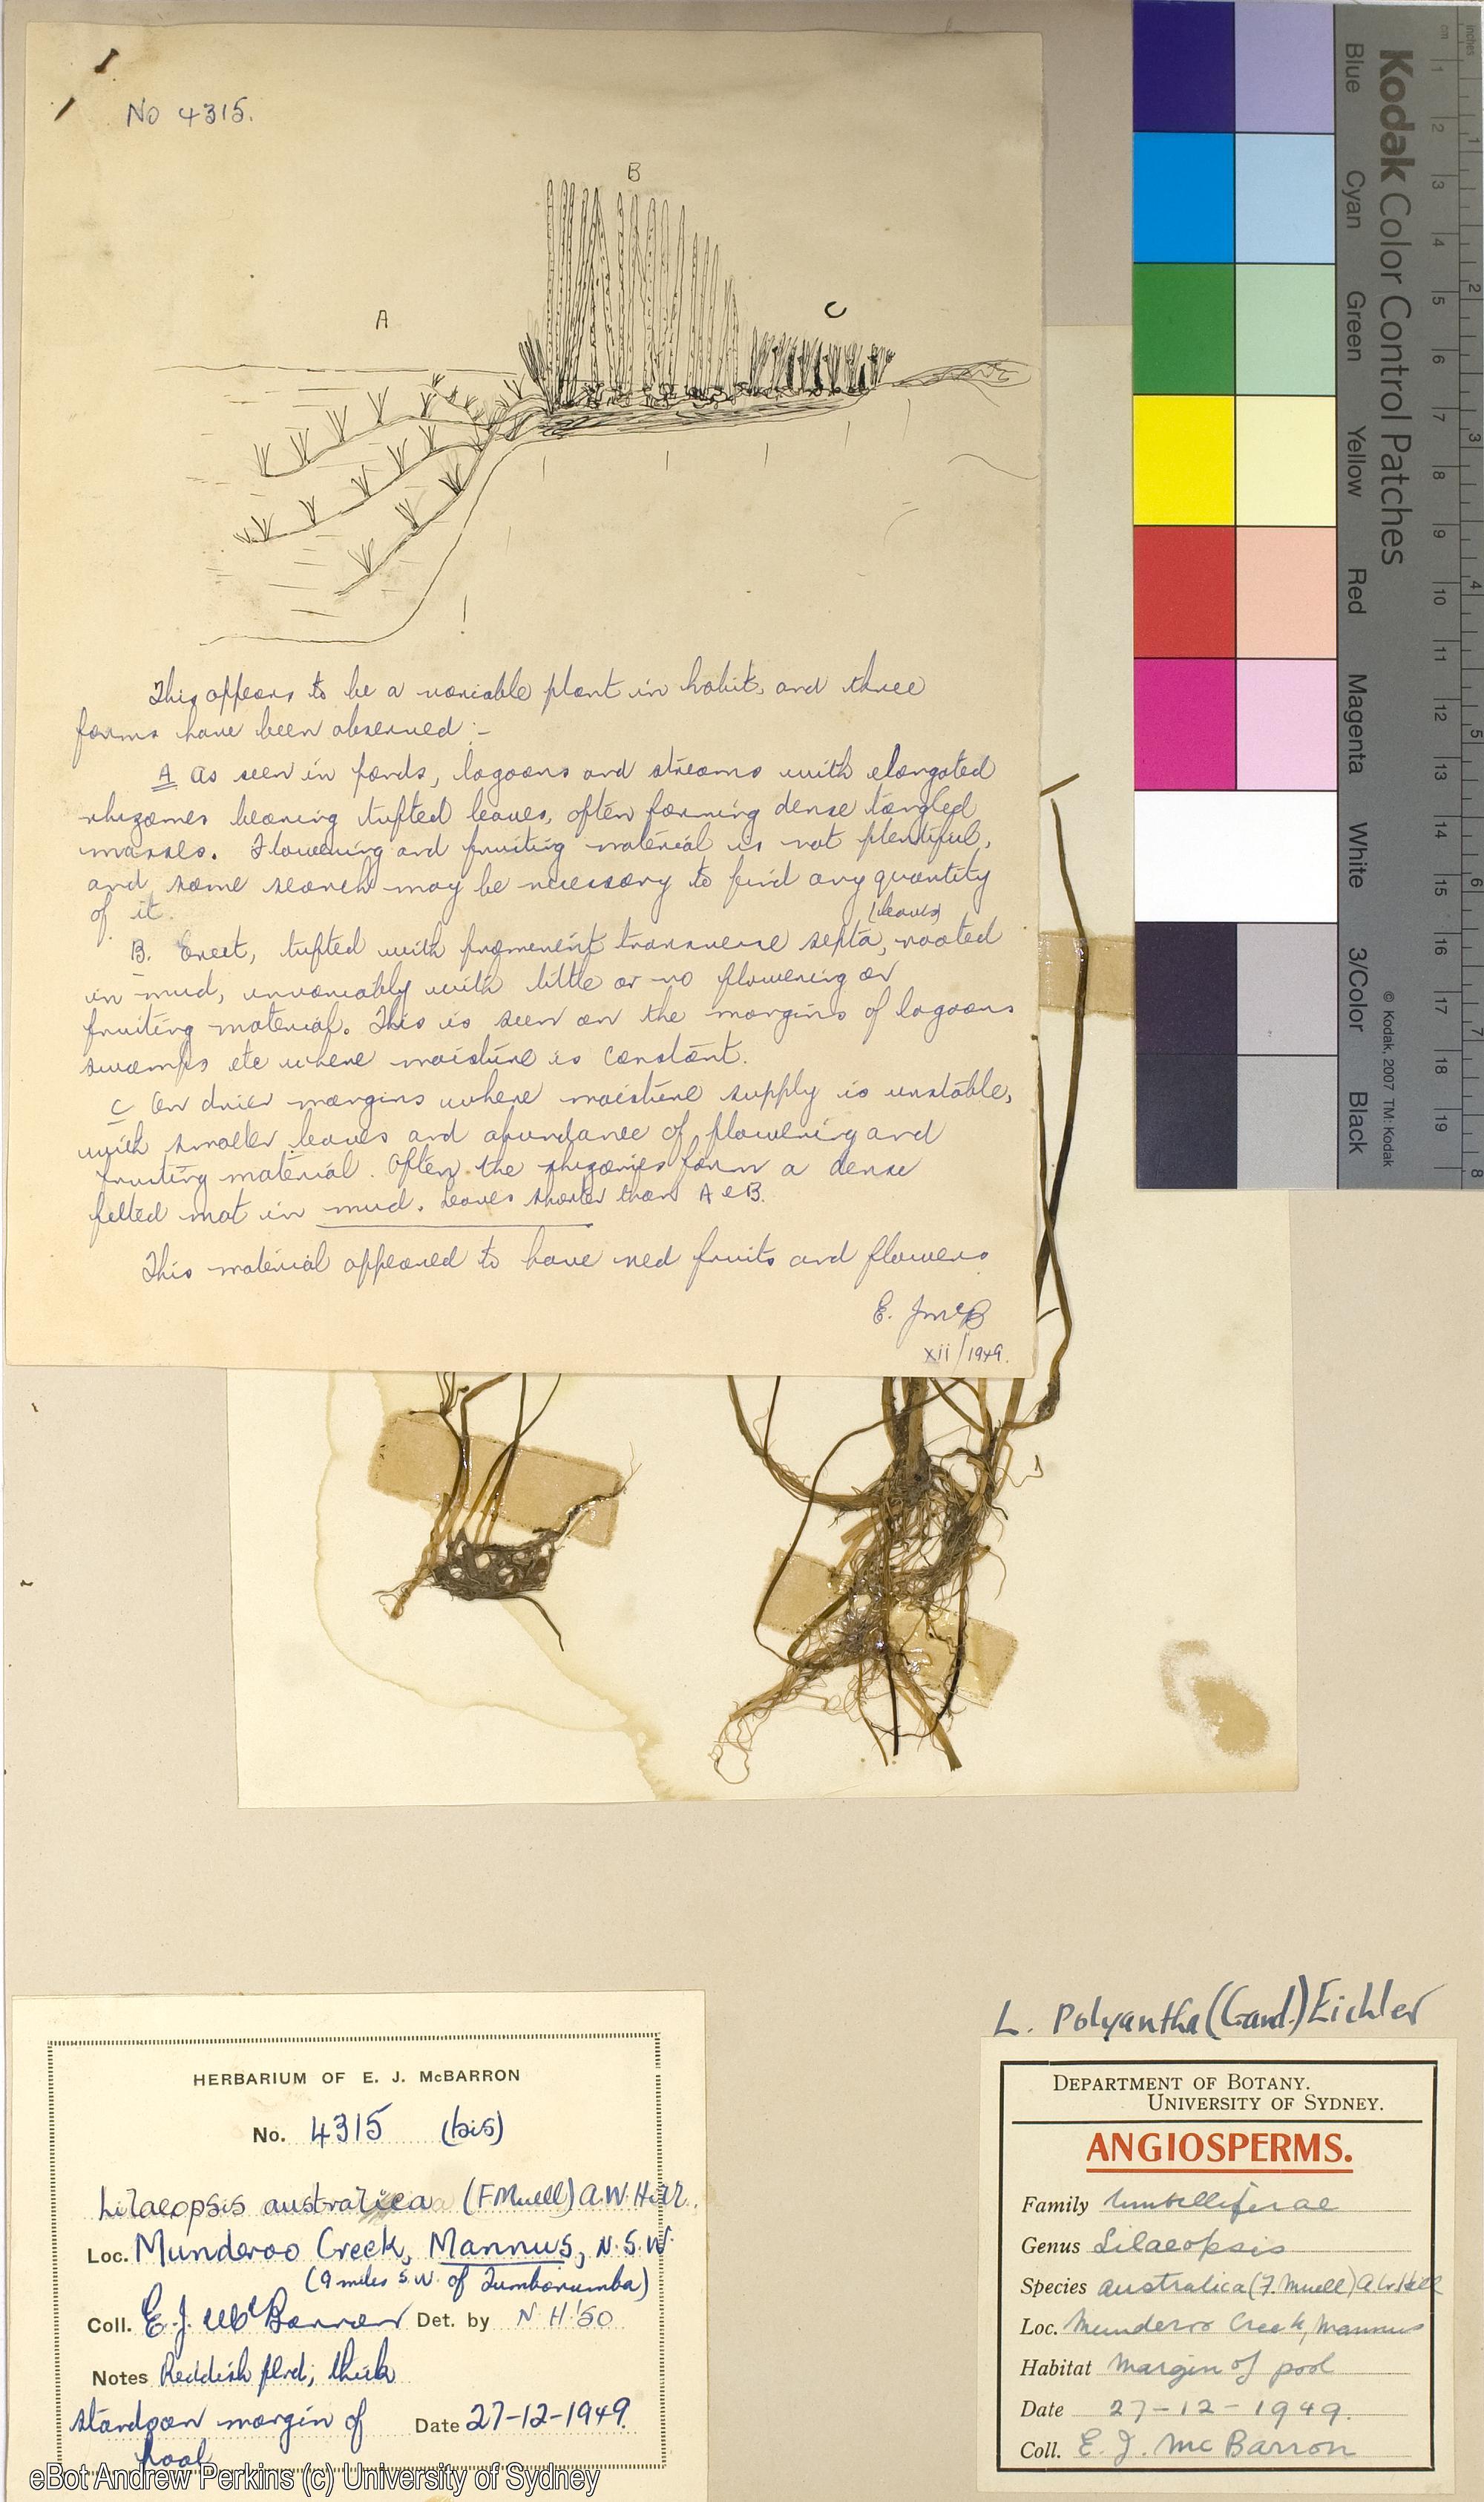 No 4315.
B
A
C
This appears to be a variable plant in habit, and three
forms have been observed :-
A As seen in ponds, lagoons and streams with elongated
rhizomes bearing tufted leaves, often forming dense tangled
masses. Flowering and fruiting material is not plentiful,
and some search may be necessary to find any quantity
of it.
(leaves)
B. Erect, tufted with prominent transverse septa, rooted
in mud, invariably with little or no flowering or
fruiting material. This is seen on the margins of lagoons
swamps etc where moisture is constant.
C On drier margins where moisture supply is unstable,
with smaller leaves and abundance of flowering and
fruiting material. Often the rhizomes form a dense
felted mat in mud. Leaves shorter than A & B.
This material appeared to have red fruits and flowers
E. J McB
xii/1949.
Kodak Color Control Patches
Blue Cyan Green Yellow Red Magenta White 3/Color Black
© Kodak, 2007 TM: Kodak
cm 1 2 3 4 5 6 7 8 9 10 11 12 13 14 15 16 17 18 19
inches 1 2 3 4 5 6 7 8
HERBARIUM OF E. J. McBARRON
No. 4315 (bis)
Lilaeopsis australica (F.Muell) A.W.Hill.
Loc. Munderoo Creek, Mannus, N.S.W.
(9 miles S.W. of Tumbarumba)
Coll. E. J. McBarron Det. by N H.'50
Notes Reddish flrd; thick
stand on margin of Date 27-12-1949.
pool
L. Polyantha (Gand.) Eichler
DEPARTMENT OF BOTANY.
UNIVERSITY OF SYDNEY.
ANGIOSPERMS.
Family Umbelliferae
Genus Lilaeopsis
Species australica (F.Muell) A.W.Hill
Loc. Munderoo Creek, Mannus
Habitat Margin of pool
Date 27-12-1949.
Coll. E. J. McBarron
eBot Andrew Perkins (c) University of Sydney